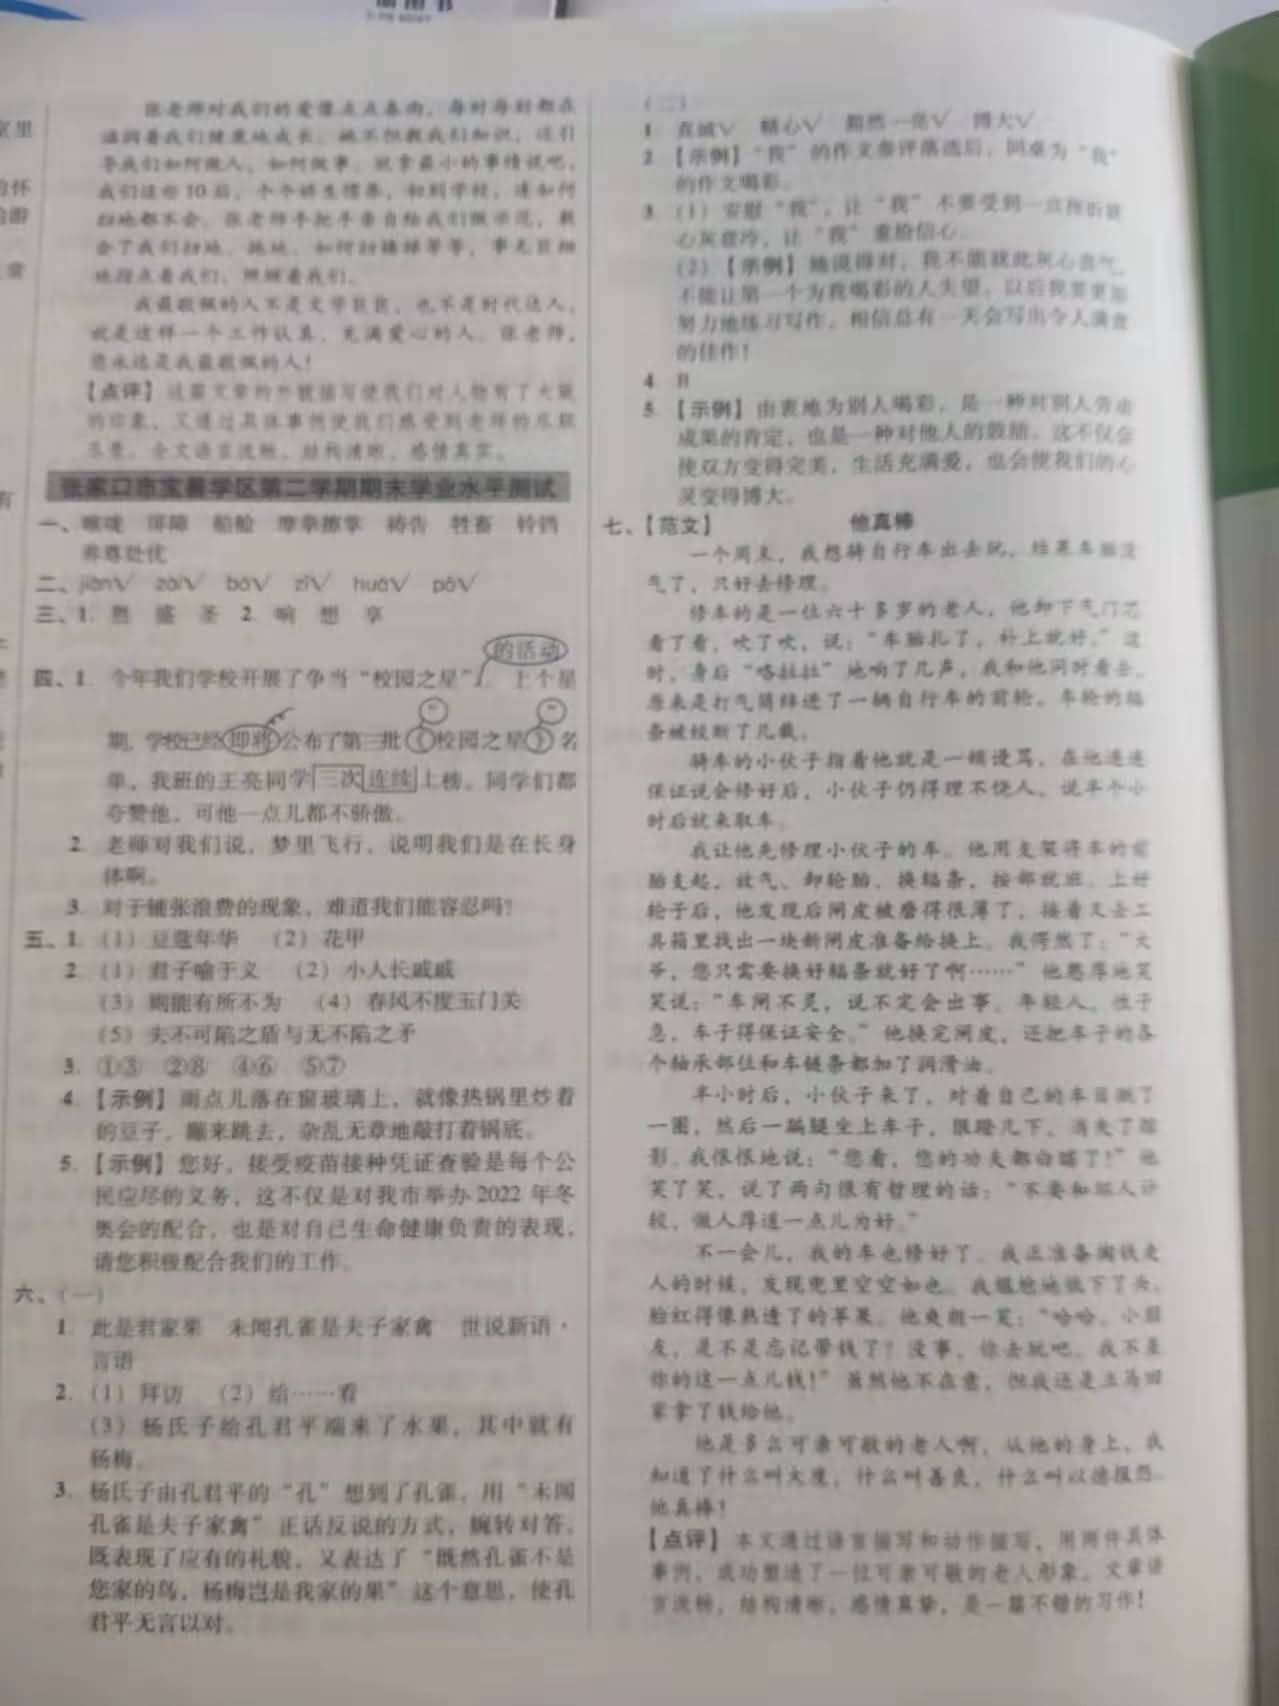 张老师对我们的爱像点点春雨，每时每刻都在
滋润着我们健康地成长。她不但教我们知识，还引
导我们如何做人，如何做事。就拿最小的事情说吧，
我们这些10后，个个娇生惯养，初到学校，连如何
扫地都不会。张老师手把手亲自给我们做示范，教
会了我们扫地、拖地、如何扫楼梯等等，事无巨细
地指点着我们、照顾着我们。
我最敬佩的人不是文学巨匠，也不是时代达人，
就是这样一个工作认真、充满爱心的人。张老师，
您永远是我最敬佩的人！
【点评】这篇文章的外貌描写使我们对人物有了大致
的印象，又通过具体事例使我们感受到老师的尽职
尽责。全文语言流畅，结构清晰，感情真实。
张家口市宣化学区第二学期期末学业水平测试
一、喉咙 屏障 船舱 摩拳擦掌 祷告 牲畜 铃铛
养尊处优
二、jiàn√ zài√ bó√ zǐ√ huá√ pō√
三、1. 胜 盛 圣 2. 响 想 享
的活动
四、1. 今年我们学校开展了争当“校园之星”。上个星
期，学校已经即将公布了第三批《校园之星》名
单，我班的王亮同学三次连续上榜。同学们都
夸赞他，可他一点儿都不骄傲。
2. 老师对我们说，梦里飞行，说明我们是在长身
体啊。
3. 对于铺张浪费的现象，难道我们能容忍吗？
五、1. （1）豆蔻年华 （2）花甲
2. （1）君子喻于义 （2）小人长戚戚
（3）则能有所不为 （4）春风不度玉门关
（5）夫不可陷之盾与无不陷之矛
3. ①③ ②⑧ ④⑥ ⑤⑦
4. 【示例】雨点儿落在窗玻璃上，就像热锅里炒着
的豆子，蹦来跳去，杂乱无章地敲打着锅底。
5. 【示例】您好，接受疫苗接种凭证查验是每个公
民应尽的义务，这不仅是对我市举办2022年冬
奥会的配合，也是对自己生命健康负责的表现，
请您积极配合我们的工作。
六、（一）
1. 此是君家果 未闻孔雀是夫子家禽 世说新语·
言语
2. （1）拜访 （2）给……看
（3）杨氏子给孔君平端来了水果，其中就有
杨梅。
3. 杨氏子由孔君平的“孔”想到了孔雀，用“未闻
孔雀是夫子家禽”正话反说的方式，婉转对答，
既表现了应有的礼貌，又表达了“既然孔雀不是
您家的鸟，杨梅岂是我家的果”这个意思，使孔
君平无言以对。
（二）
1. 真诚√ 精心√ 黯然一亮√ 博大√
2. 【示例】“我”的作文参评落选后，同桌为“我”
的作文喝彩。
3. （1）安慰“我”，让“我”不要受到一点挫折就
心灰意冷，让“我”重拾信心。
（2）【示例】她说得对，我不能就此灰心丧气，
不能让第一个为我喝彩的人失望，以后我要更加
努力地练习写作，相信总有一天会写出令人满意
的佳作！
4. B
5. 【示例】由衷地为别人喝彩，是一种对别人劳动
成果的肯定，也是一种对他人的鼓励。这不仅会
使双方变得完美，生活充满爱，也会使我们的心
灵变得博大。
七、【范文】 他真棒
一个周末，我想骑自行车出去玩，结果车胎没
气了，只好去修理。
修车的是一位六十多岁的老人，他卸下气门芯
看了看，吹了吹，说：“车胎扎了，补上就好。”这
时，身后“咯拉拉”地响了几声，我和他同时看去，
原来是打气筒绊进了一辆自行车的前轮，车轮的辐
条被绞断了几截。
骑车的小伙子指着他就是一顿谩骂，在他连连
保证说会修好后，小伙子仍得理不饶人，说半个小
时后就来取车。
我让他先修理小伙子的车。他用支架将车的前
胎支起，放气、卸轮胎、换辐条，按部就班。上好
轮子后，他发现后闸皮被磨得很薄了，接着又去工
具箱里找出一块新闸皮准备给换上。我愕然了：“大
爷，您只需要换好辐条就好了啊……”他憨厚地笑
笑说：“车闸不灵，说不定会出事。年轻人，性子
急，车子得保证安全。”他换完闸皮，还把车子的各
个轴承部位和车链条都加了润滑油。
半小时后，小伙子来了，对着自己的车目测了
一圈，然后一蹁腿坐上车子，跟蹬几下，消失了踪
影。我恨恨地说：“您看，您的功夫都白瞎了！”他
笑了笑，说了两句很有哲理的话：“不要和那人计
较，做人厚道一点儿为好。”
不一会儿，我的车也修好了。我正准备掏钱走
人的时候，发现兜里空空如也。我尴尬地低下了头，
脸红得像熟透了的苹果。他爽朗一笑：“哈哈，小朋
友，是不是忘记带钱了？没事，你去玩吧，我不差
你的这一点儿钱！”虽然他不在意，但我还是立马回
家拿了钱给他。
他是多么可亲可敬的老人啊，从他的身上，我
知道了什么叫大度，什么叫善良，什么叫以德报怨。
他真棒！
【点评】本文通过语言描写和动作描写，用两件具体
事例，成功塑造了一位可亲可敬的老人形象。文章语
言流畅，结构清晰，感情真挚，是一篇不错的习作！